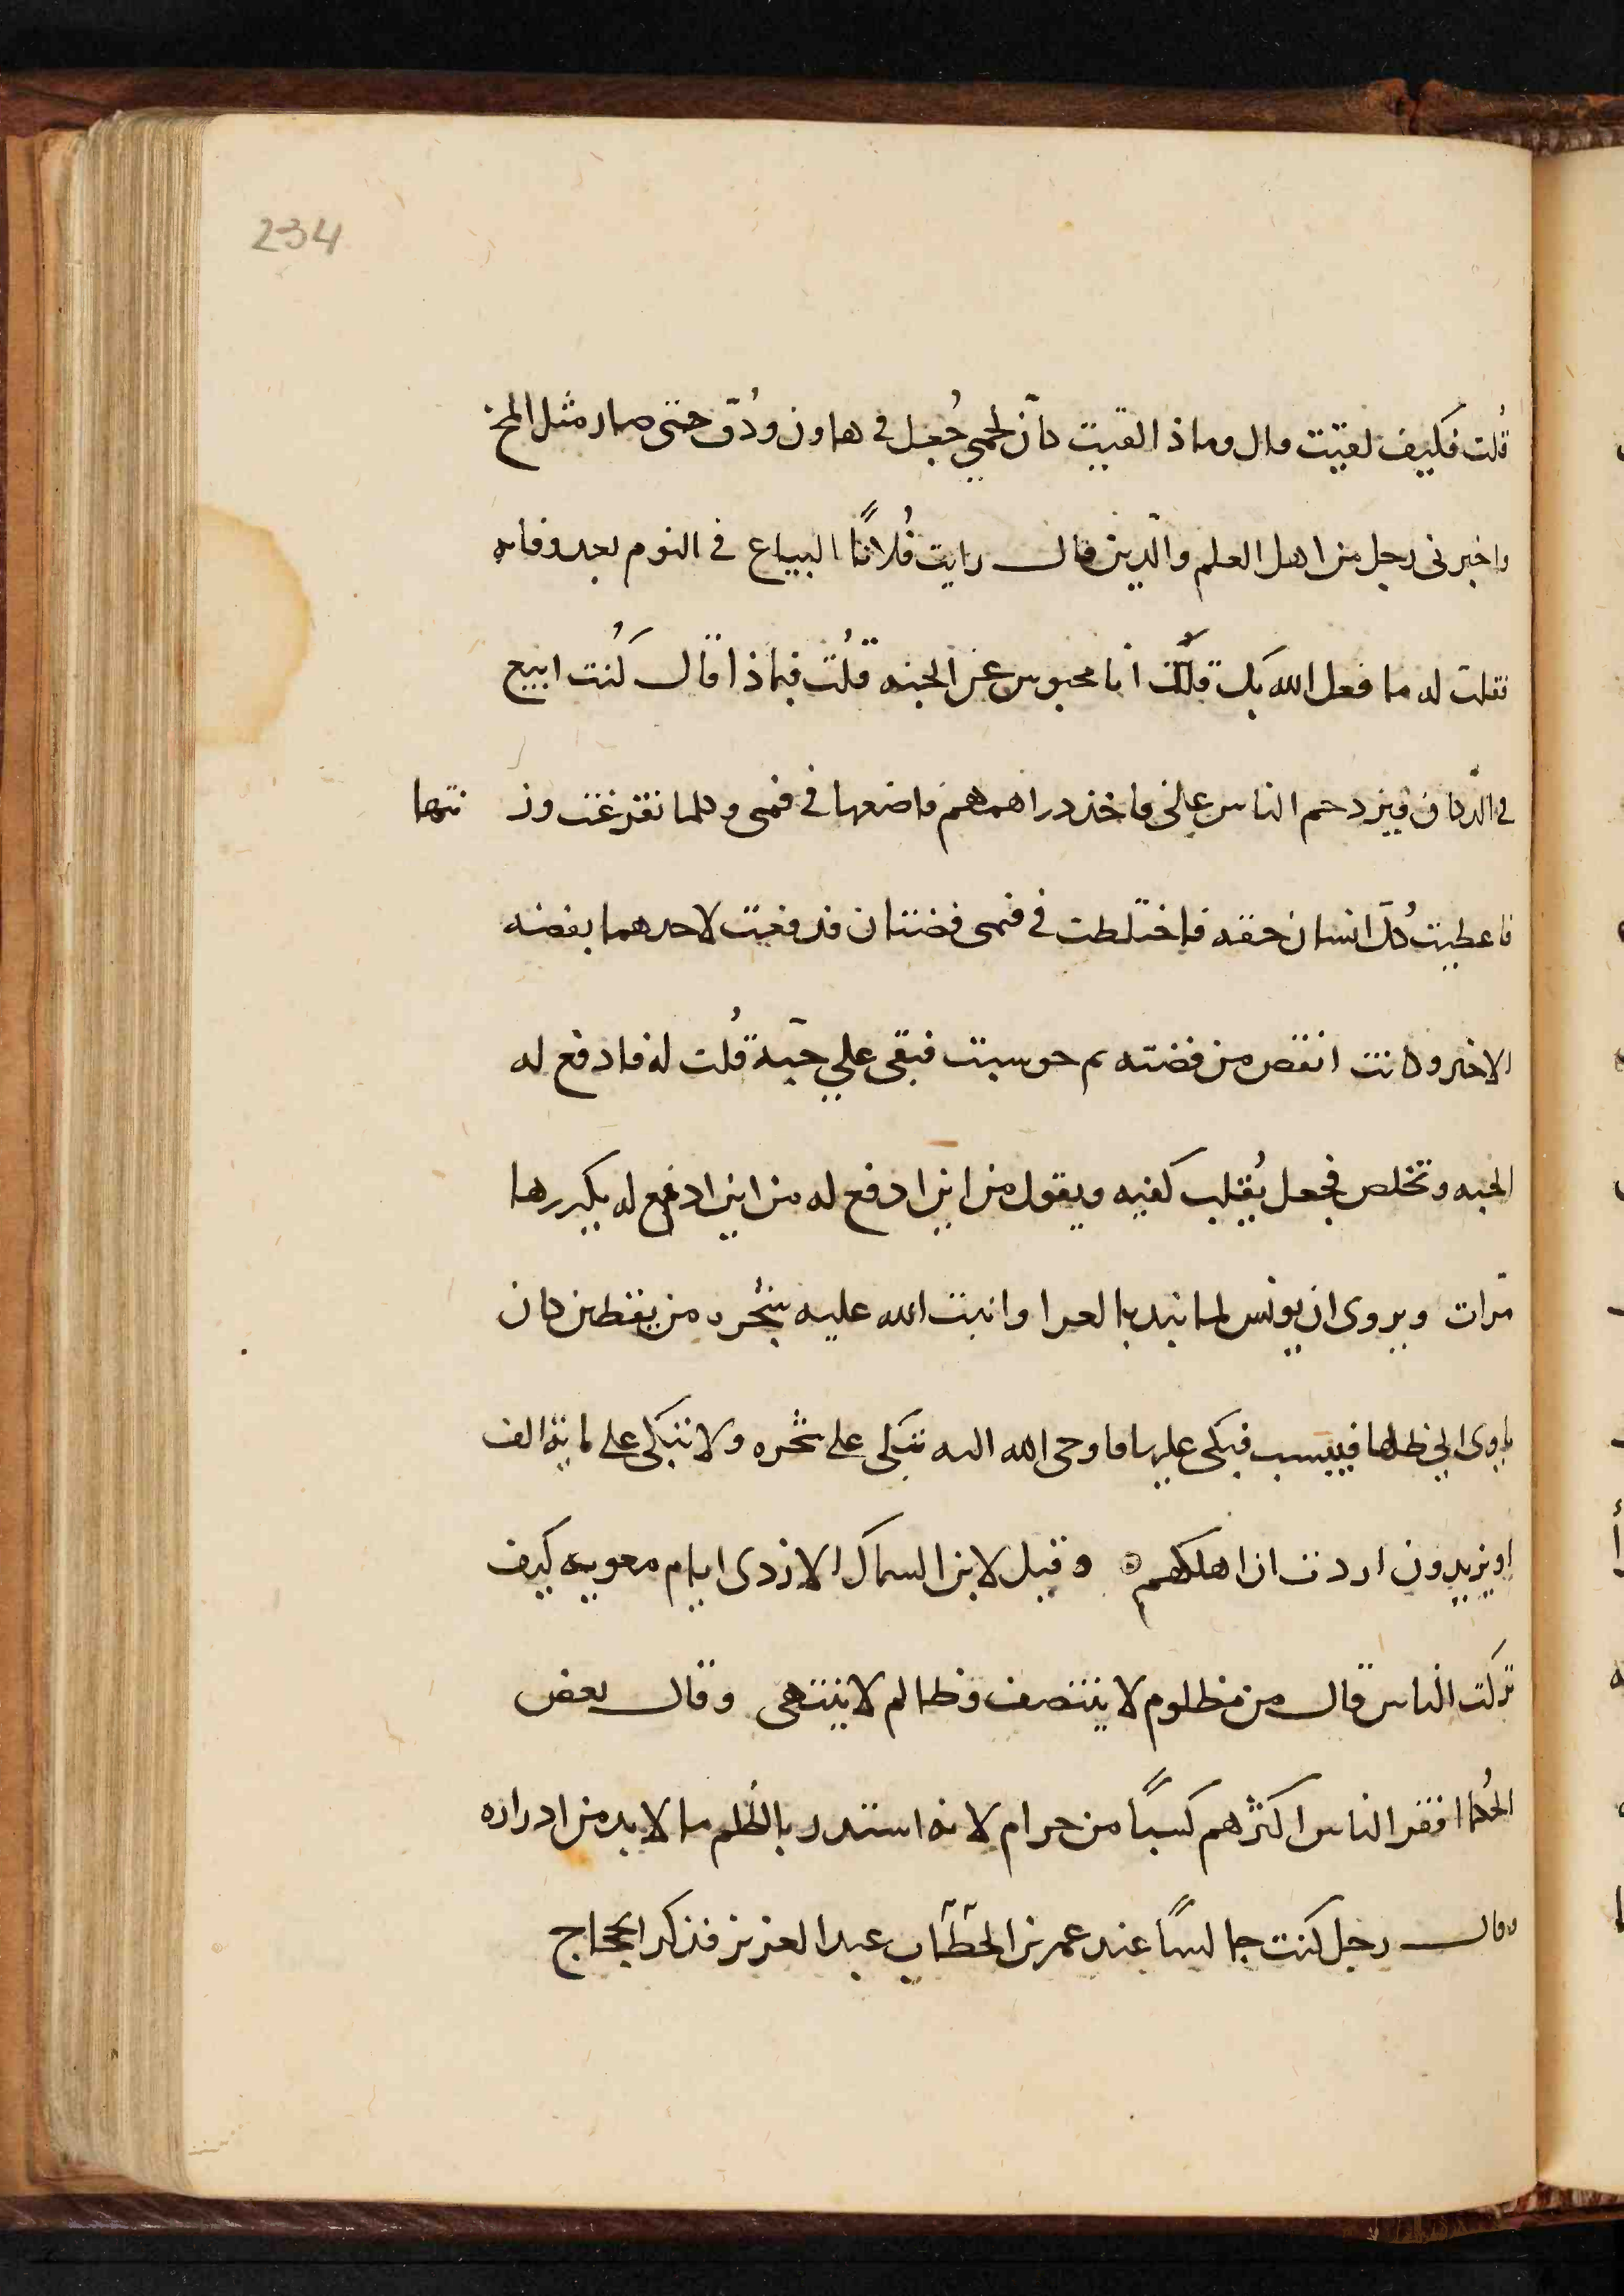 234
قُلت فكيف لقيت قال وماذا لقيت كأنّ لحمي جُعل في هاون ودُق حتى صار مثل المخ
واخبرني رجل من اهل العلم والّدين قال رايت فُلاناً البياع في النوم بعد وفاته
فقلت له ما فعل الله بك قال انا محبوس عن الجنه قلُت فبماذا قال كُنت ابيع
في الدّكان فيزدحم الناس على فاخذ دراهمهم فاضعها في فمى وكلما تفرغت وز نتها
فاعطيت كُلّ انسان حقه فاختلطت في فمى فضتان فدفعت لاحدهما بفضه
الاخر وكانت انقص من فضته ثم حوسبت فبقى علي حبّه قُلت له فادفع له
الحبه وتخلص فجعل يُقلب كفيه ويقول من اين ادفع له من اين ادفع له يكررها
مّرات ويروى ان يونس لما نبد بالعرا وانبت الله عليه شجره من يقطين كان
ياوى الى ظلها فيبست فبكى عليها فاوحى الله اليه تبكى على شجره ولا تبكى على ماية الف
او يزيدون اردت ان اهلكهم وقيل لابن السماك الازدى ايام معويه كيف
تركت الناس قال من مظلوم لا ينتصف وظالم لا ينتهى وقال بعض
الحُكما افقر الناس اكثرهم كسباً من حرام لانه استدر بالظُلم ما لا بد من ادراره
وقال رجل كنت جالساً عند عمر بن الخطّاب عبد العزيز فذكر الحجاج